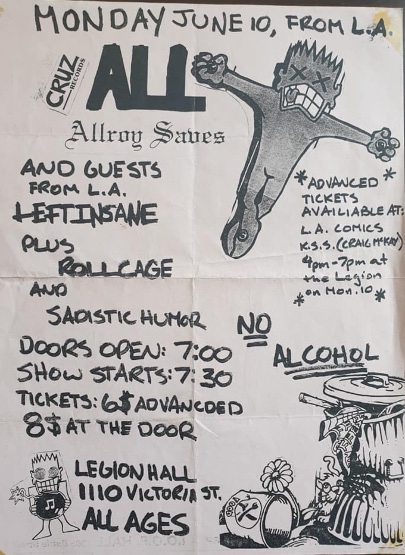 MONDAY JUNE 10, FROM L.A.
CRUZ
RECORDS
ALL
Allroy Saves
AND GUESTS
FROM L.A.
LEFT INSANE
PLUS
ROLLCAGE
AND
SADISTIC HUMOR
DOORS OPEN: 7:00
SHOW STARTS: 7:30
TICKETS: 6$ ADVANCDED
8$ AT THE DOOR
LEGION HALL
1110 VICTORIA ST.
ALL AGES
*ADVANCED*
TICKETS
AVAILIABLE AT:
L.A. COMICS
K.S.S. (CRAIG MCKAY)
4pm-7pm at
the Legion
*on Mon. 10*
NO
ALCOHOL